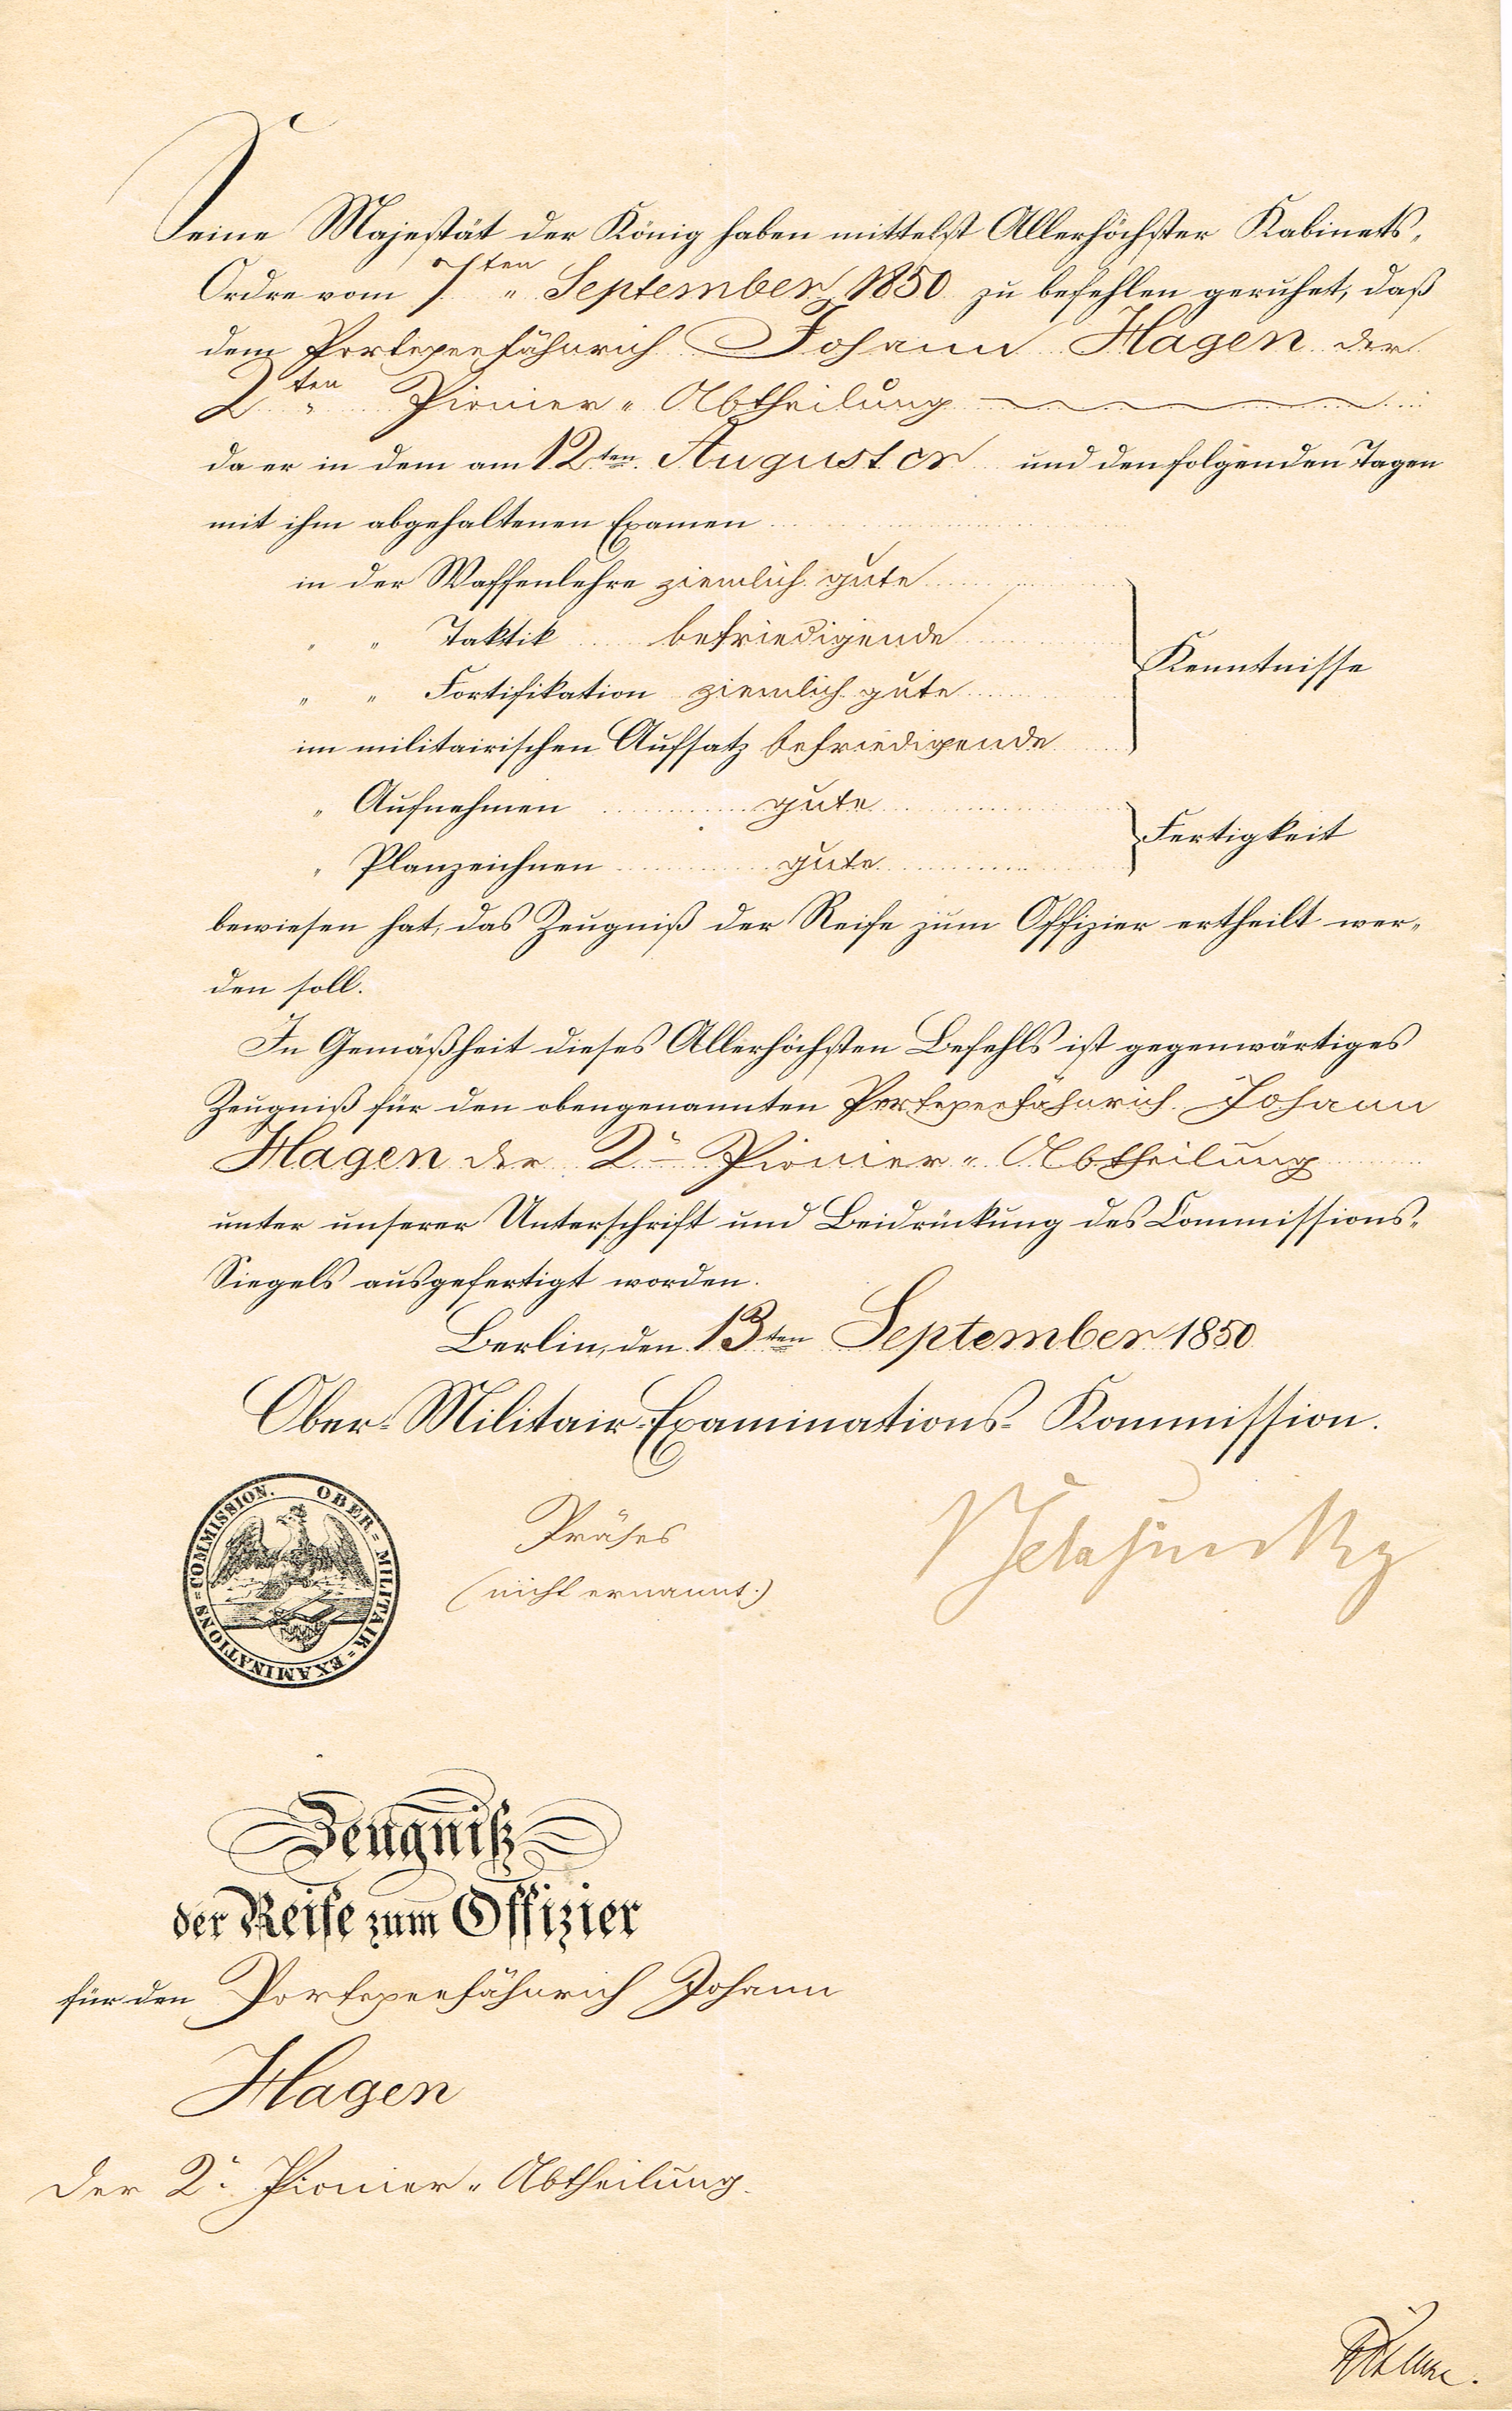 Seine Majestät der König haben mittelst Allerhöchster Kabinets-
Ordre vom 7ten September 1850 zu befehlen geruhet, daß
dem Portepeefähnrich Johann Hagen der
2ten Pionier-Abtheilung
da er in dem am 12ten August cr und den folgenden Tagen
mit ihm abgehaltenen Examen
in der Waffenlehre ziemlich gute
" " Taktik befriedigende
" " Fortifikation ziemlich gute
im militairischen Aufsatz befriedigende
Kenntnisse
" Aufnehmen gute
" Planzeichnen gute
Fertigkeit
bewiesen hat, das Zeugniß der Reife zum Offizier ertheilt wer-
den soll.
In Gemäßheit dieses Allerhöchsten Befehls ist gegenwärtiges
Zeugniß für den obengenannten Portepeefähnrich Johann
Hagen der 2t Pionier-Abtheilung
unter unserer Unterschrift und Beidrückung des Commissions-
Siegels ausgefertigt worden.
Berlin, den 13ten September 1850
Ober-Militair-Examinations-Kommission.
OBER-MILITAIR-EXAMINATIONS-COMMISSION.
Präses
(nicht ernannt.)
Zeugniß
der Reife zum Offizier
für den Portepeefähnrich Johann
Hagen
der 2t Pionier-Abtheilung.